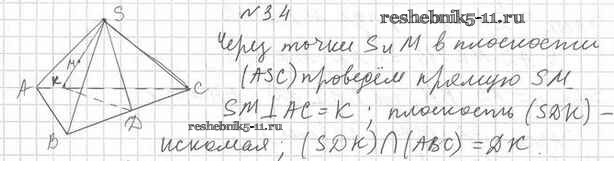 № 3.4
reshebnik5-11.ru
S
Через точки S и M в плоскости
M
(ASC) проведём прямую SM
A K C
SM ⊥ AC = K ; плоскость (SDK) –
D
reshebnik5-11.ru
B
искомая; (SDK) ∩ (ABC) = DK.